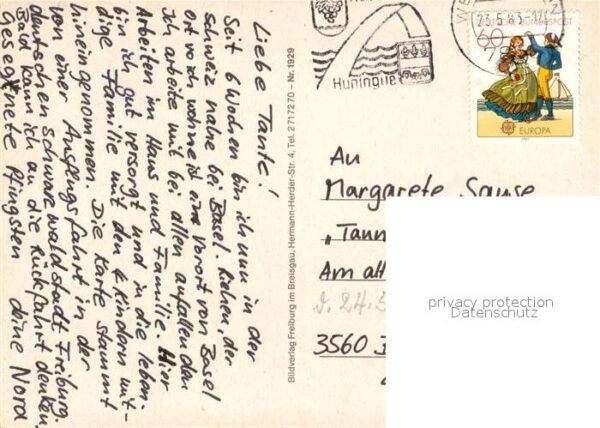 Liebe Tante!
Seit 6 Wochen bin ich nun in der
Schweiz nahe bei Basel. Riehen, der
Ort wo ich wohne ist eine Vorort von Basel
Ich arbeite mit bei allen anfallenden
Arbeiten im Haus und Familie. Hier
bin ich gut versorgt und in die leben-
dige Familie mit den 4 Kindern mit-
hineingenommen. Die Karte stammt
von einer Ausflugsfahrt in der
deutschen Schwarzwaldstadt Freiburg.
Bald kann ich an die Rückfahrt denken.
Gesegnete Pfingsten deine Nora
Bildverlag Freiburg im Breisgau, Hermann-Herder-Str. 4, Tel. 2717270 – Nr. 1929
Huningue
23.5.83
DEUTSCHE BUNDESPOST
60
EUROPA
An
Margarete Sause
„Tann
Am alt
3560
privacy protection
Datenschutz